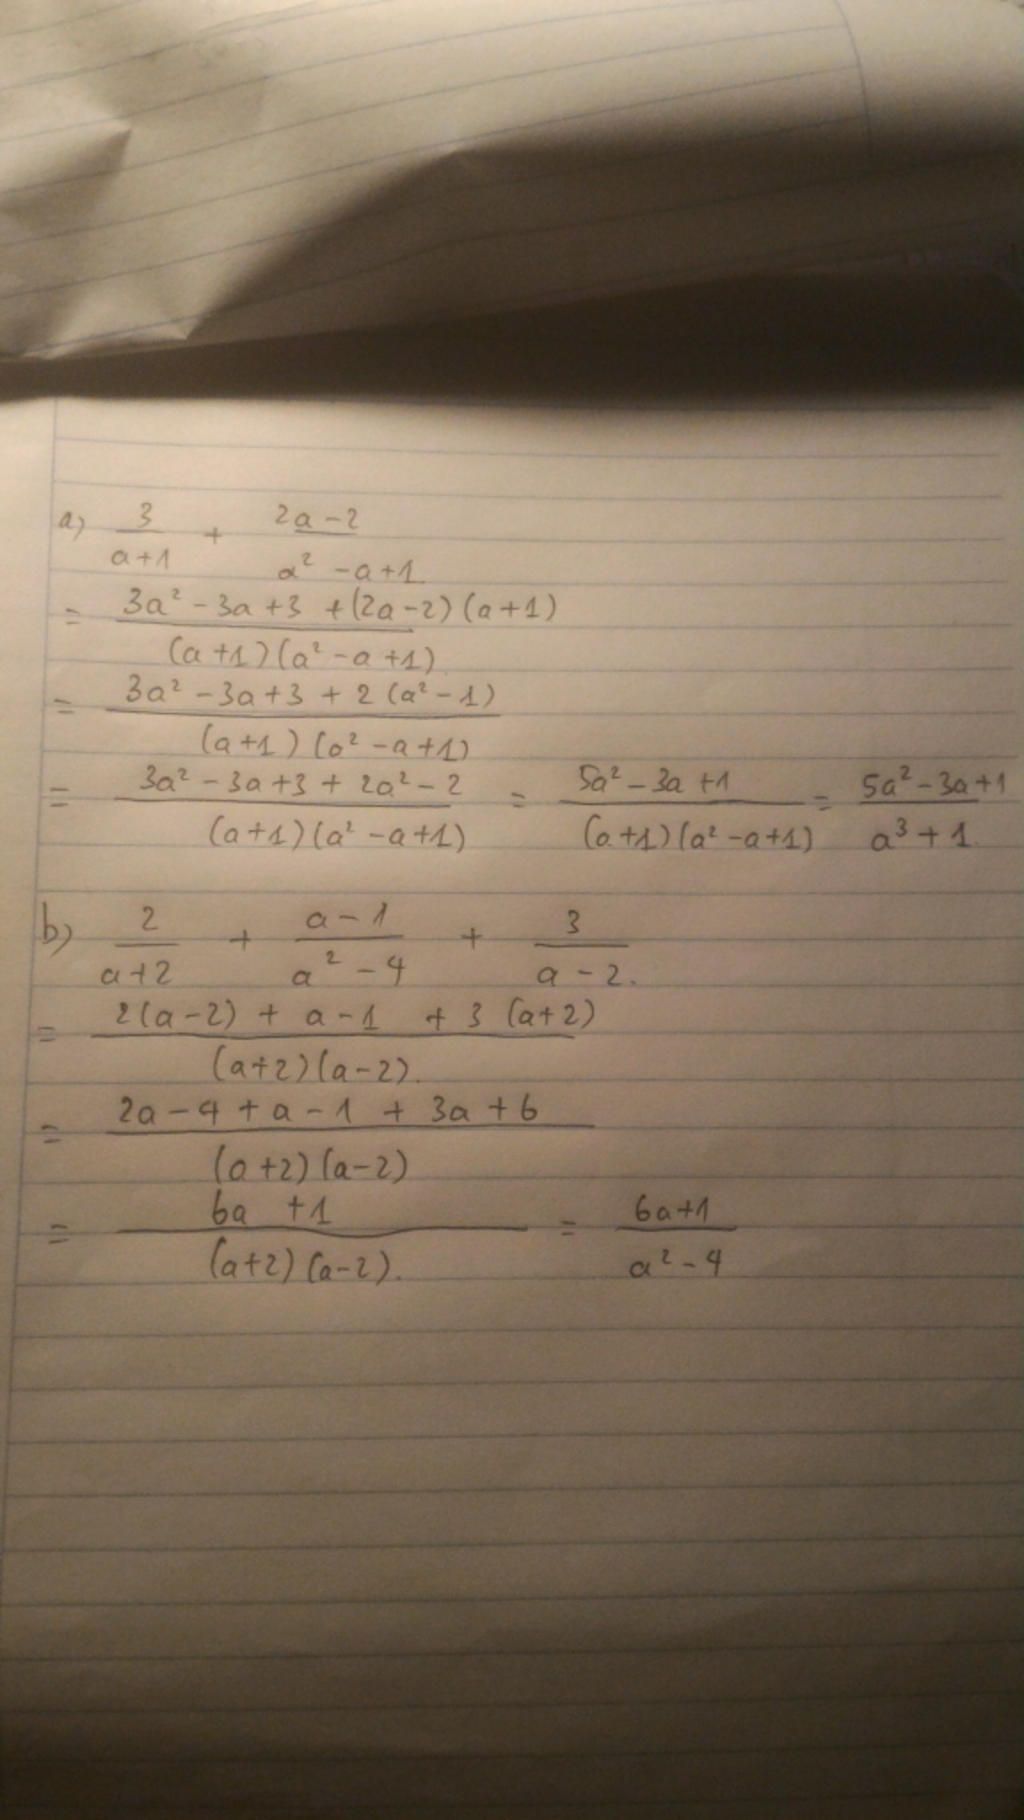 a) 3/(a+1) + (2a-2)/(a²-a+1)
= (3a²-3a+3+(2a-2)(a+1))/((a+1)(a²-a+1))
= (3a²-3a+3+2(a²-1))/((a+1)(a²-a+1))
= (3a²-3a+3+2a²-2)/((a+1)(a²-a+1)) = (5a²-3a+1)/((a+1)(a²-a+1)) = (5a²-3a+1)/(a³+1)
b) 2/(a+2) + (a-1)/(a²-4) + 3/(a-2).
= (2(a-2)+a-1+3(a+2))/((a+2)(a-2)).
= (2a-4+a-1+3a+6)/((a+2)(a-2))
= (6a+1)/((a+2)(a-2)). = (6a+1)/(a²-4)